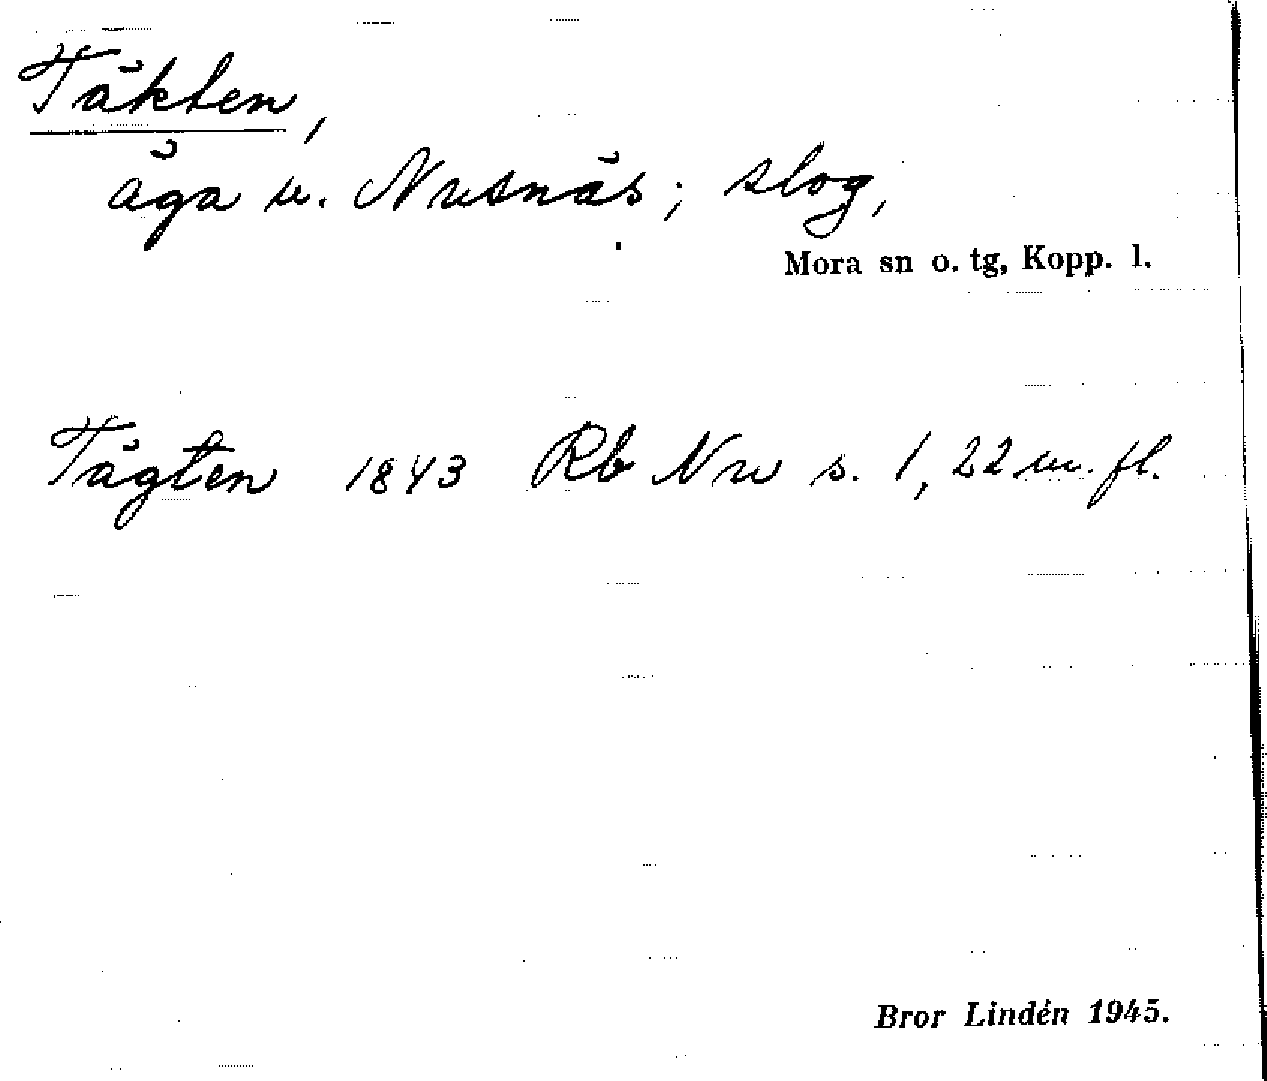 Täkten,
äga u. Nusnäs; slog,
Mora sn o. tg, Kopp. l.
Tägten 1843 Rb Nu s. 1, 22 m. fl.
Bror Lindén 1945.